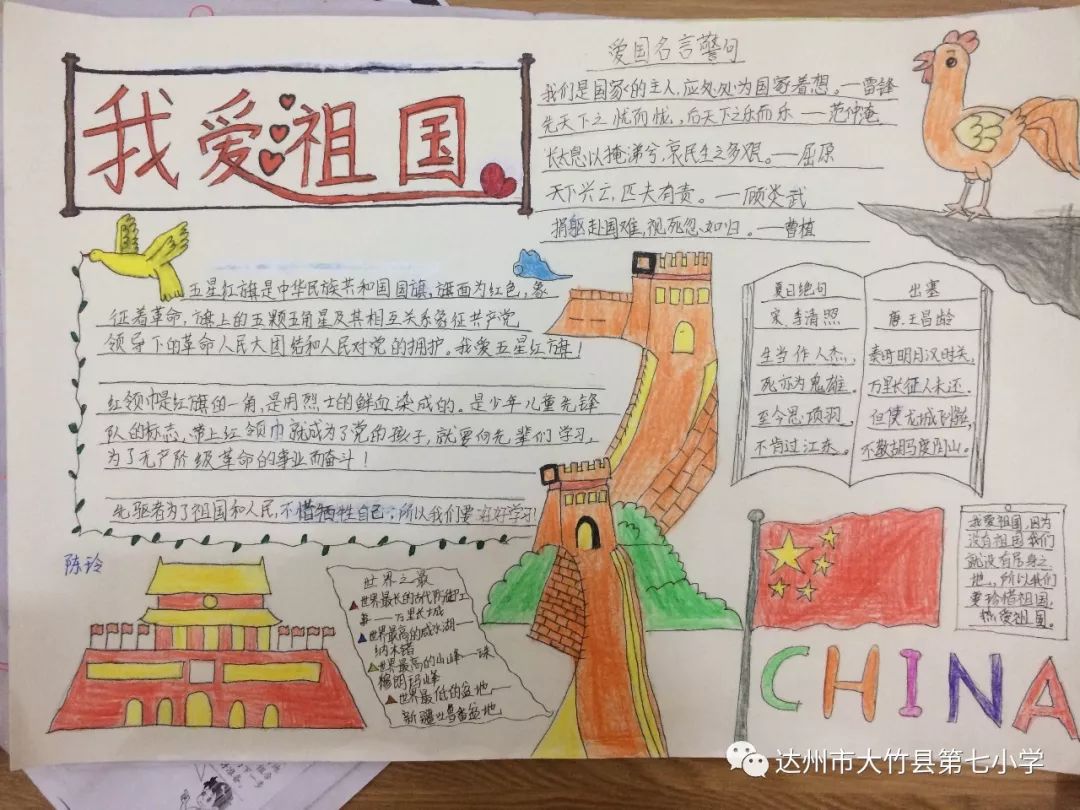 我爱祖国
爱国名言警句
我们是国家的主人,应处处为国家着想。——雷锋
先天下之忧而忧,后天下之乐而乐——范仲淹
长太息以掩涕兮,哀民生之多艰。——屈原
天下兴亡,匹夫有责。——顾炎武
捐躯赴国难,视死忽如归。——曹植
五星红旗是中华民族共和国国旗,旗面为红色,象
征着革命,旗上的五颗五角星及其相互关系象征共产党
领导下的革命人民大团结和人民对党的拥护。我爱五星红旗!
红领巾是红旗的一角,是用烈士的鲜血染成的。是少年儿童先锋
队的标志,带上红领巾就成为了党的孩子,就要向先辈们学习,
为了无产阶级革命的事业而奋斗!
先驱者为了祖国和人民,不惜牺牲自己;所以我们要好好学习!
陈玲
夏日绝句
宋.李清照
生当作人杰,
死亦为鬼雄。
至今思项羽,
不肯过江东。
出塞
唐.王昌龄
秦时明月汉时关,
万里长征人未还.
但使龙城飞将在,
不教胡马度阴山。
世界之最
世界最长的古代防御工
事——万里长城
世界最高的咸水湖——
纳木错
世界最高的山峰——珠
穆朗玛峰
世界最低的盆地——
新疆吐鲁番盆地
我爱祖国,因为
没有祖国我们
就没有居身之
地,所以我们
要珍惜祖国,
热爱祖国。
CHINA
达州市大竹县第七小学